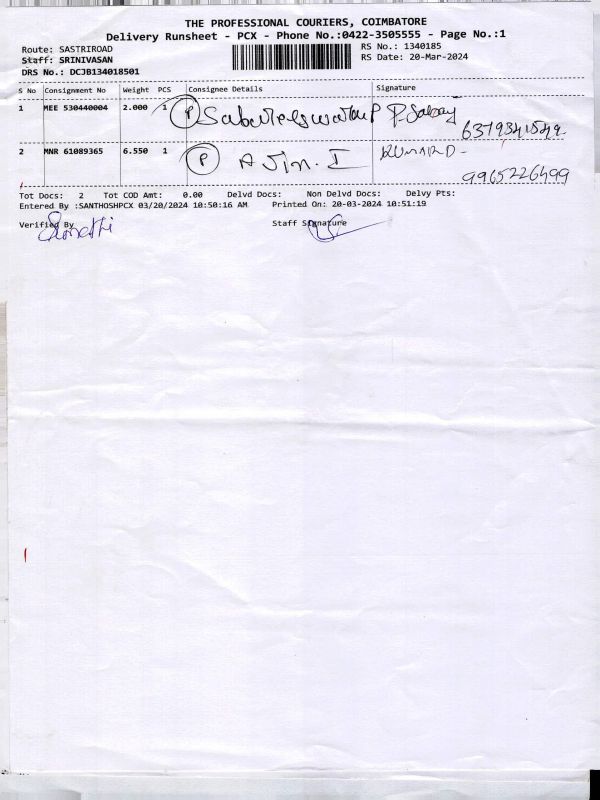 THE PROFESSIONAL COURIERS, COIMBATORE
Delivery Runsheet - PCX - Phone No.:0422-3505555 - Page No.:1
Route: SASTRIROAD RS No.: 1340185
Staff: SRINIVASAN RS Date: 20-Mar-2024
DRS No.: DCJB134018501
S No Consignment No Weight PCS Consignee Details Signature
1 MEE 530440004 2.000 1 P
2 MNR 61089365 6.550 1 P Ajin. I KUMAR D-
9965226499
Tot Docs: 2 Tot COD Amt: 0.00 Delvd Docs: Non Delvd Docs: Delvy Pts:
Entered By :SANTHOSHPCX 03/20/2024 10:50:16 AM Printed On: 20-03-2024 10:51:19
Verified By Staff Signature